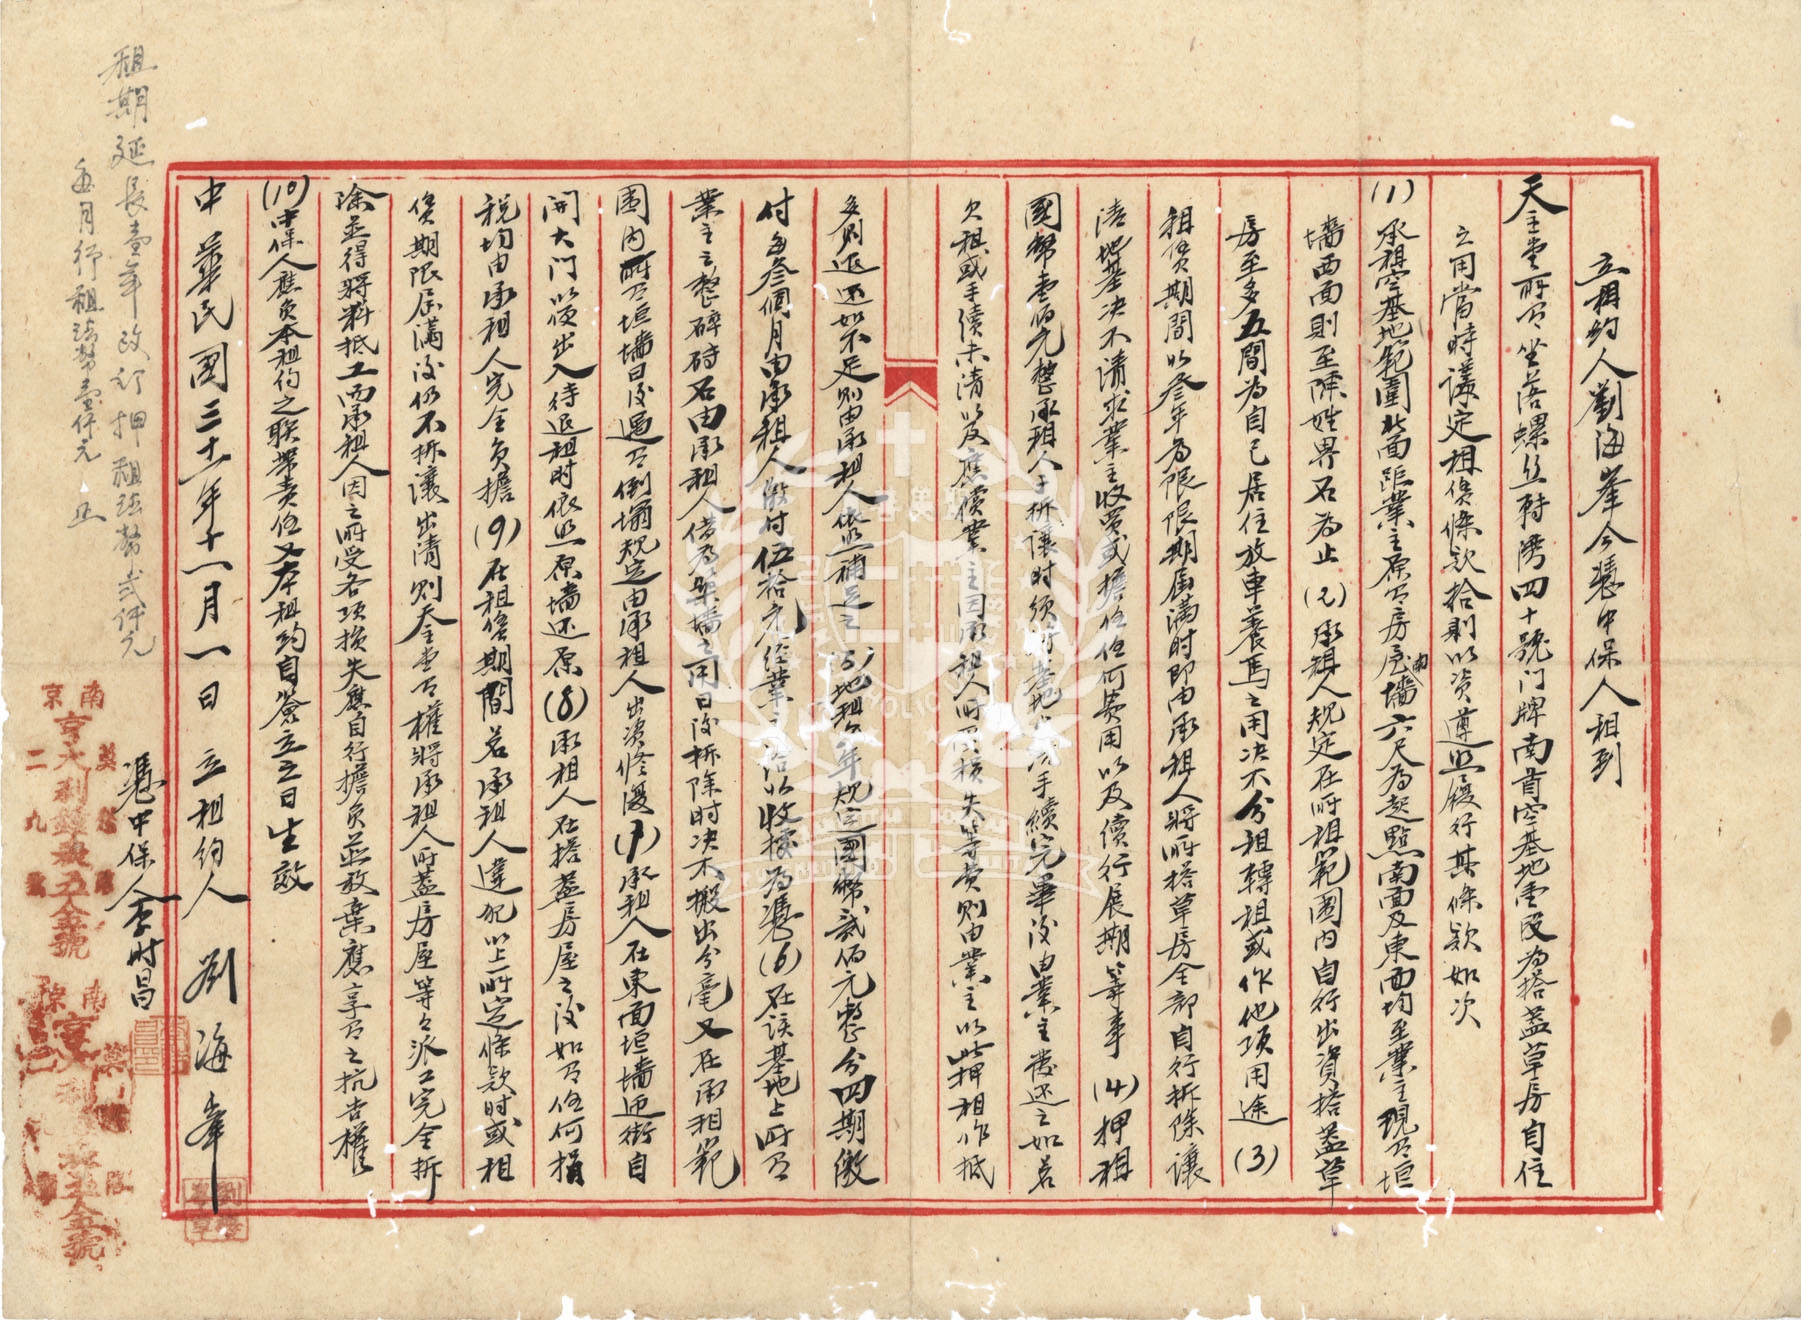 立租約人劉海峯今憑中保人租到
天主堂所有坐落螺丝轉灣四十號门牌南首空基地壹段為搭蓋草房自住
之用當時議定租賃條款拾則以资遵照履行其條款如次
(1)承租空基地範圍北面距業主原有房屋南墻六尺為起點南面及東面均至業主現有垣
墻西面則至陳姓界石為止(2)承租人規定在所租範圍内自行出資搭蓋草
房至多五間為自己居住放車養馬之用决不分租轉租或作他項用途(3)
租賃期間以叁年為限限期屆满時即由承租人將所搭草房全部自行拆除讓
清地基决不請求業主收買或擔任任何費用以及續行展期等事(4)押租
國幣壹佰元整承租人于拆讓时须将基地 手續完畢後由業主發还之如若
欠租或手續未清以及應償業主因承租人所受損失等費则由業主以此押租作抵
多则退还如不足则由承租人依照補足之(5)地租每年規定國幣貳佰元整分四期繳
付每叁個月由承租人繳付伍拾元經業主给以收據為憑(6)在该基地上所有
業主之整碎砖石由承租人借為築墙之用日後拆除时决不搬出分毫又在承租範
圍内所有垣墻日後遇有倒塌規定由承租人出资修復(7)承租人在東面垣墻迎街自
開大门以便出入待退租时依照原墻还原(8)承租人在搭蓋房屋之後如有任何捐
税均由承租人完全负擔(9)在租賃期間若承租人違犯以上所定條款时或租
賃期限屆满後仍不拆讓出清则天主堂有權將承租人所蓋房屋等々派工完全拆
除並得將料抵工而承租人因之所受各項損失應自行擔负並放棄應享有之抗告權
(10)中保人應负本租约之联帶责任又本租约自簽立之日生效
中華民國三十一年十一月一日 立租约人 劉海峯
憑中保人李时昌
租期延長壹年改订押租法幣弍仟元
每月行租法幣壹仟元正
南京
亨大利鐘表五金號
二九號